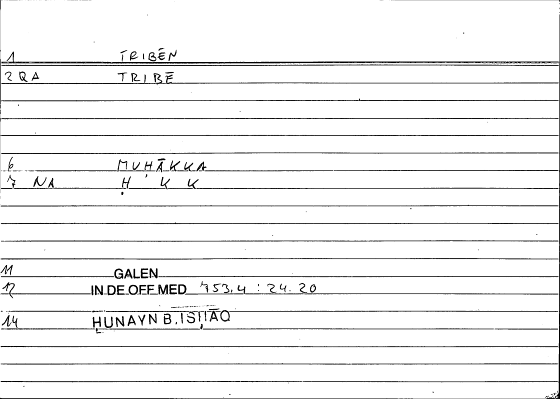 1 TRIBĒN
2 QA TRIBĒ
6 MUḤĀKKA
7 NA Ḥ K K
11 GALEN
12 IN DE OFF MED 753.4 : 24.20
14 ḤUNAYN B. ISḤĀQ